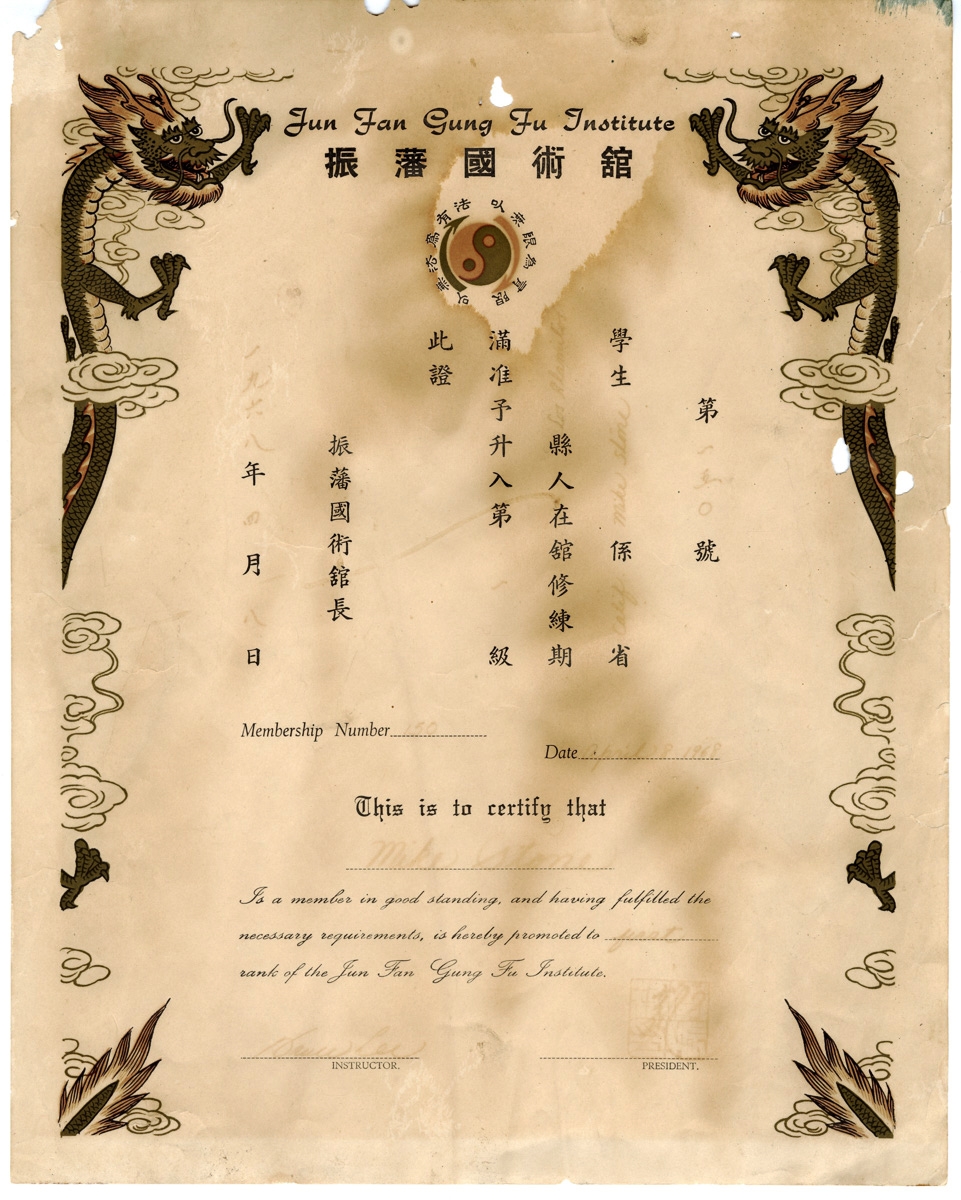 Jun Fan Gung Fu Institute
振藩國術舘
以無法為有法
以無限為有限
第一五〇號
學生 mike stone 係 Calif 省
縣人在舘修練期
滿准予升入第一級
此證
振藩國術舘長
一九六八年四月八日
Membership Number 150
Date April 1968
This is to certify that
Mike Stone
Is a member in good standing, and having fulfilled the
necessary requirements, is hereby promoted to first
rank of the Jun Fan Gung Fu Institute.
Bruce Lee
INSTRUCTOR.
PRESIDENT.